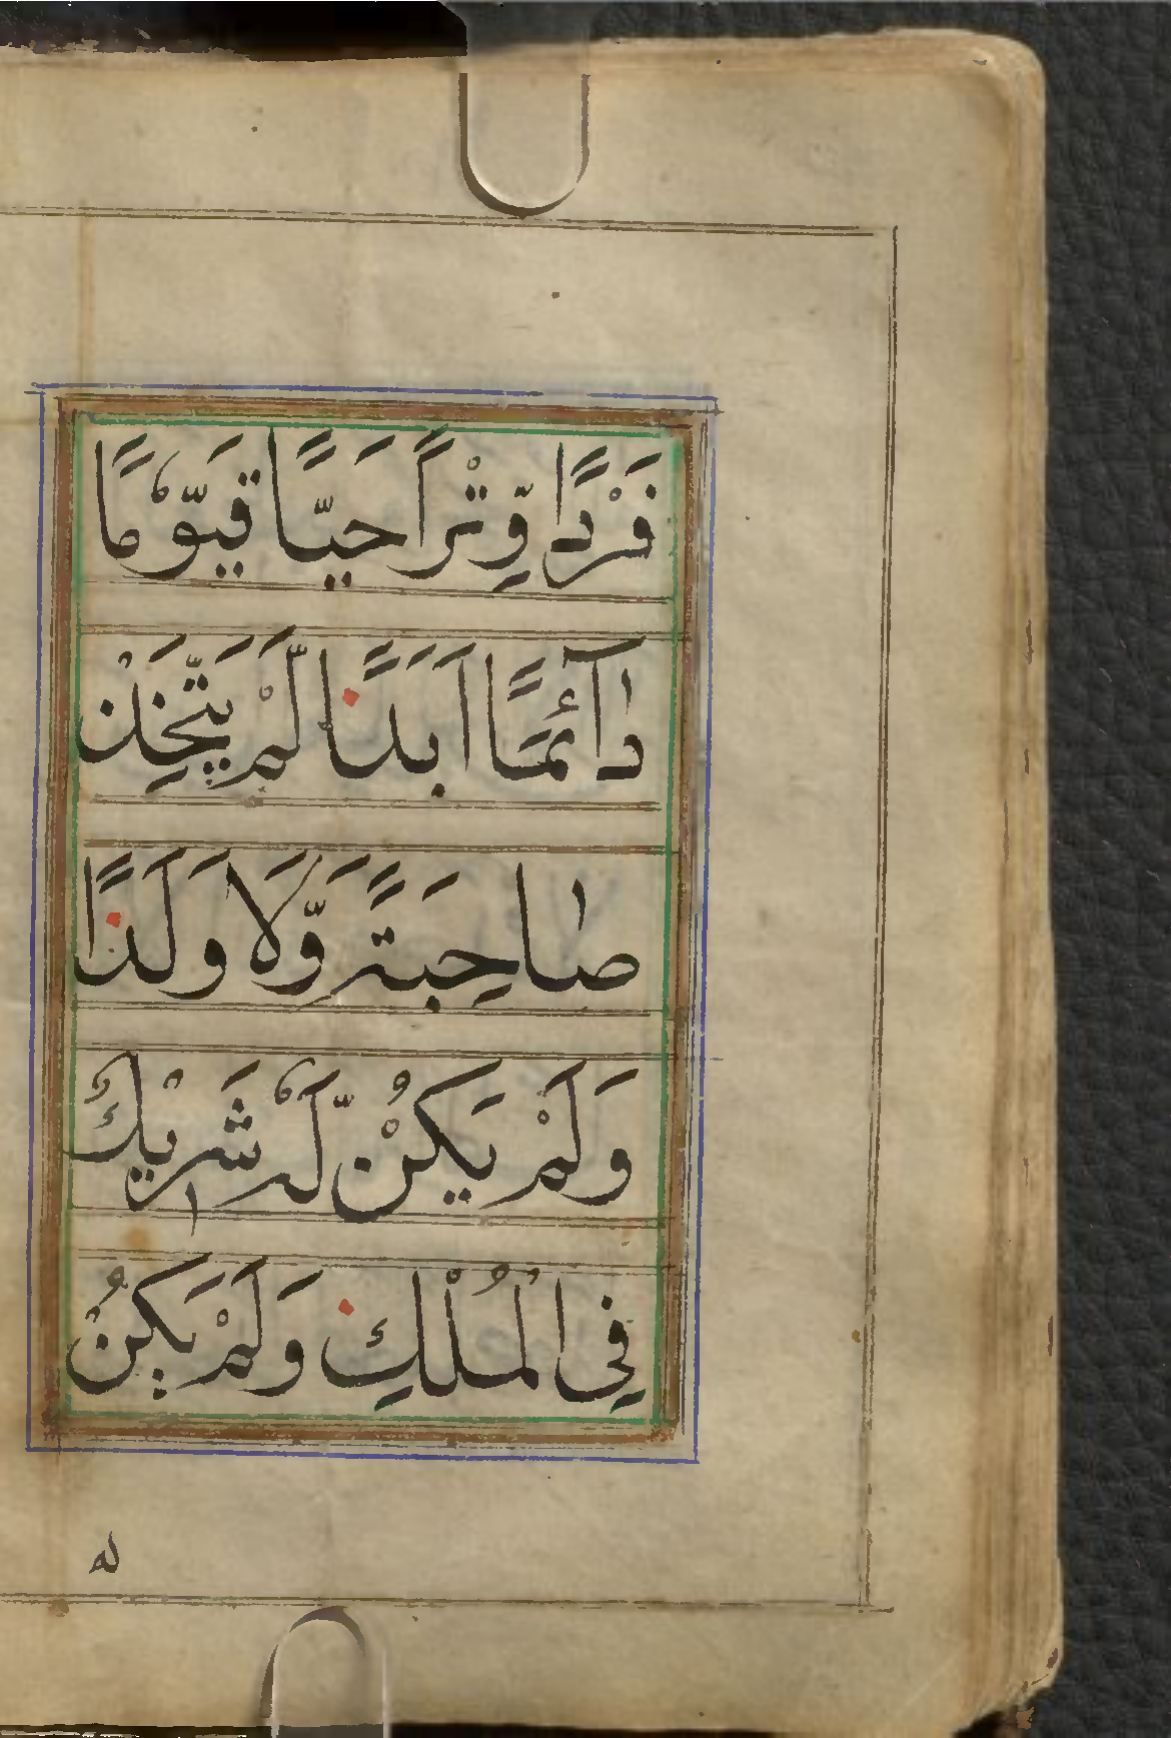 فَرْدًا وِّتْرًا حَيًّا قَيُّوْمًا
دَآئِمًا اَبَدًا لَمْ يَتَّخِذْ
صَاحِبَةً وَّلَا وَلَدًا
وَلَمْ يَكُنْ لَّهٗ شَرِيْكٌ
فِى الْمُلْكِ وَلَمْ يَكُنْ
له